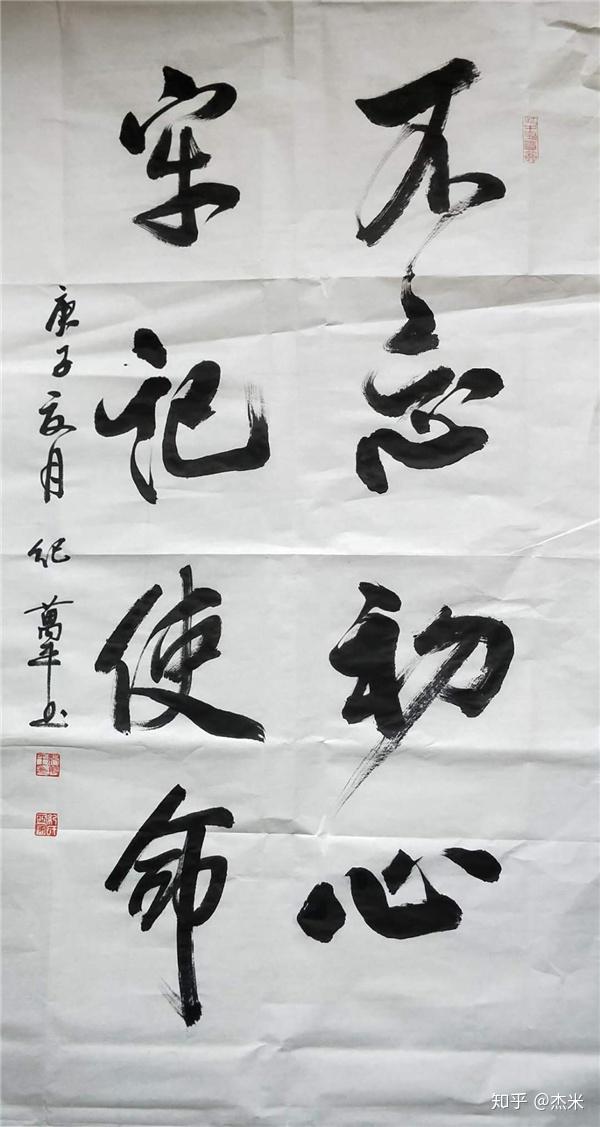 不忘初心
牢记使命
庚子夏月 纪萬平书
知乎 @杰米